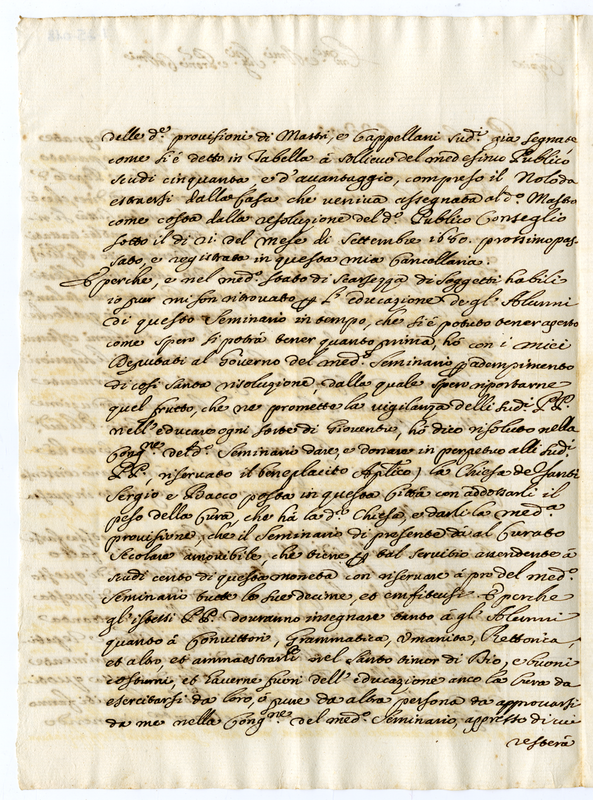 delle d.e provisioni di Mastri, e Cappellani sud.i già segnate
come si è detto in Tabella à sollievo del medesimo Publico
scudi cinquanta e d'avantaggio, compreso il Nolo da
estraersi dalla Casa che veniva assegnata al d.o Mastro
come costa dalla resoluzione del d.o Publico Conseglio
sotto il dì 21 del mese di Settembre 1680. prossimo pas-
sato, e registrato in questa mia Cancellaria.
E perche, e nel med.o stato di scarsezza di soggetti habili
io pur mi son ritrovato p l'educazione de gl'Alunni
di questo Seminario in tempo, che si è potuto tener aperto
come spero si potrà tener quanto prima, hò con i miei
Deputati al Governo del med.o Seminario p adempimento
di così santa risoluzione, dalla quale spero riportarne
quel frutto, che ne promette la vigilanza delli sud.i PP.
nell'educare ogni sorte di Gioventù, hò dico risoluto nella
Cong.ne del d.o Seminario dare, e donare in perpetuo alli sud.i
PP., riservato il beneplacito Ap.lico, la Chiesa de Santi
Sergio e Bacco posta in questa Città con addossarli il
peso della Cura, che hà la d.a Chiesa, e darli la med.a
provisione, che il Seminario di presente dà al Curato
Secolare amovibile, che tiene p tal servitio ascendente à
scudi cento di questa moneta con riservare à pro del med.o
Seminario tutte le sue decime, et emfiteusi. E perche
gl'istessi PP. dovranno insegnare tanto à gl'Alunni
quanto à Convittori, Grammatica, Umanità, Rettorica,
et altro, et ammaestrarli nel Santo timor di Dio, e buoni
costumi, et haverne fuori dell'educazione anco la Cura da
esercitarsi da loro, ò pure da altra persona da approvarsi
da me nella Cong.ne del med.o Seminario, appresso di cui
resterà